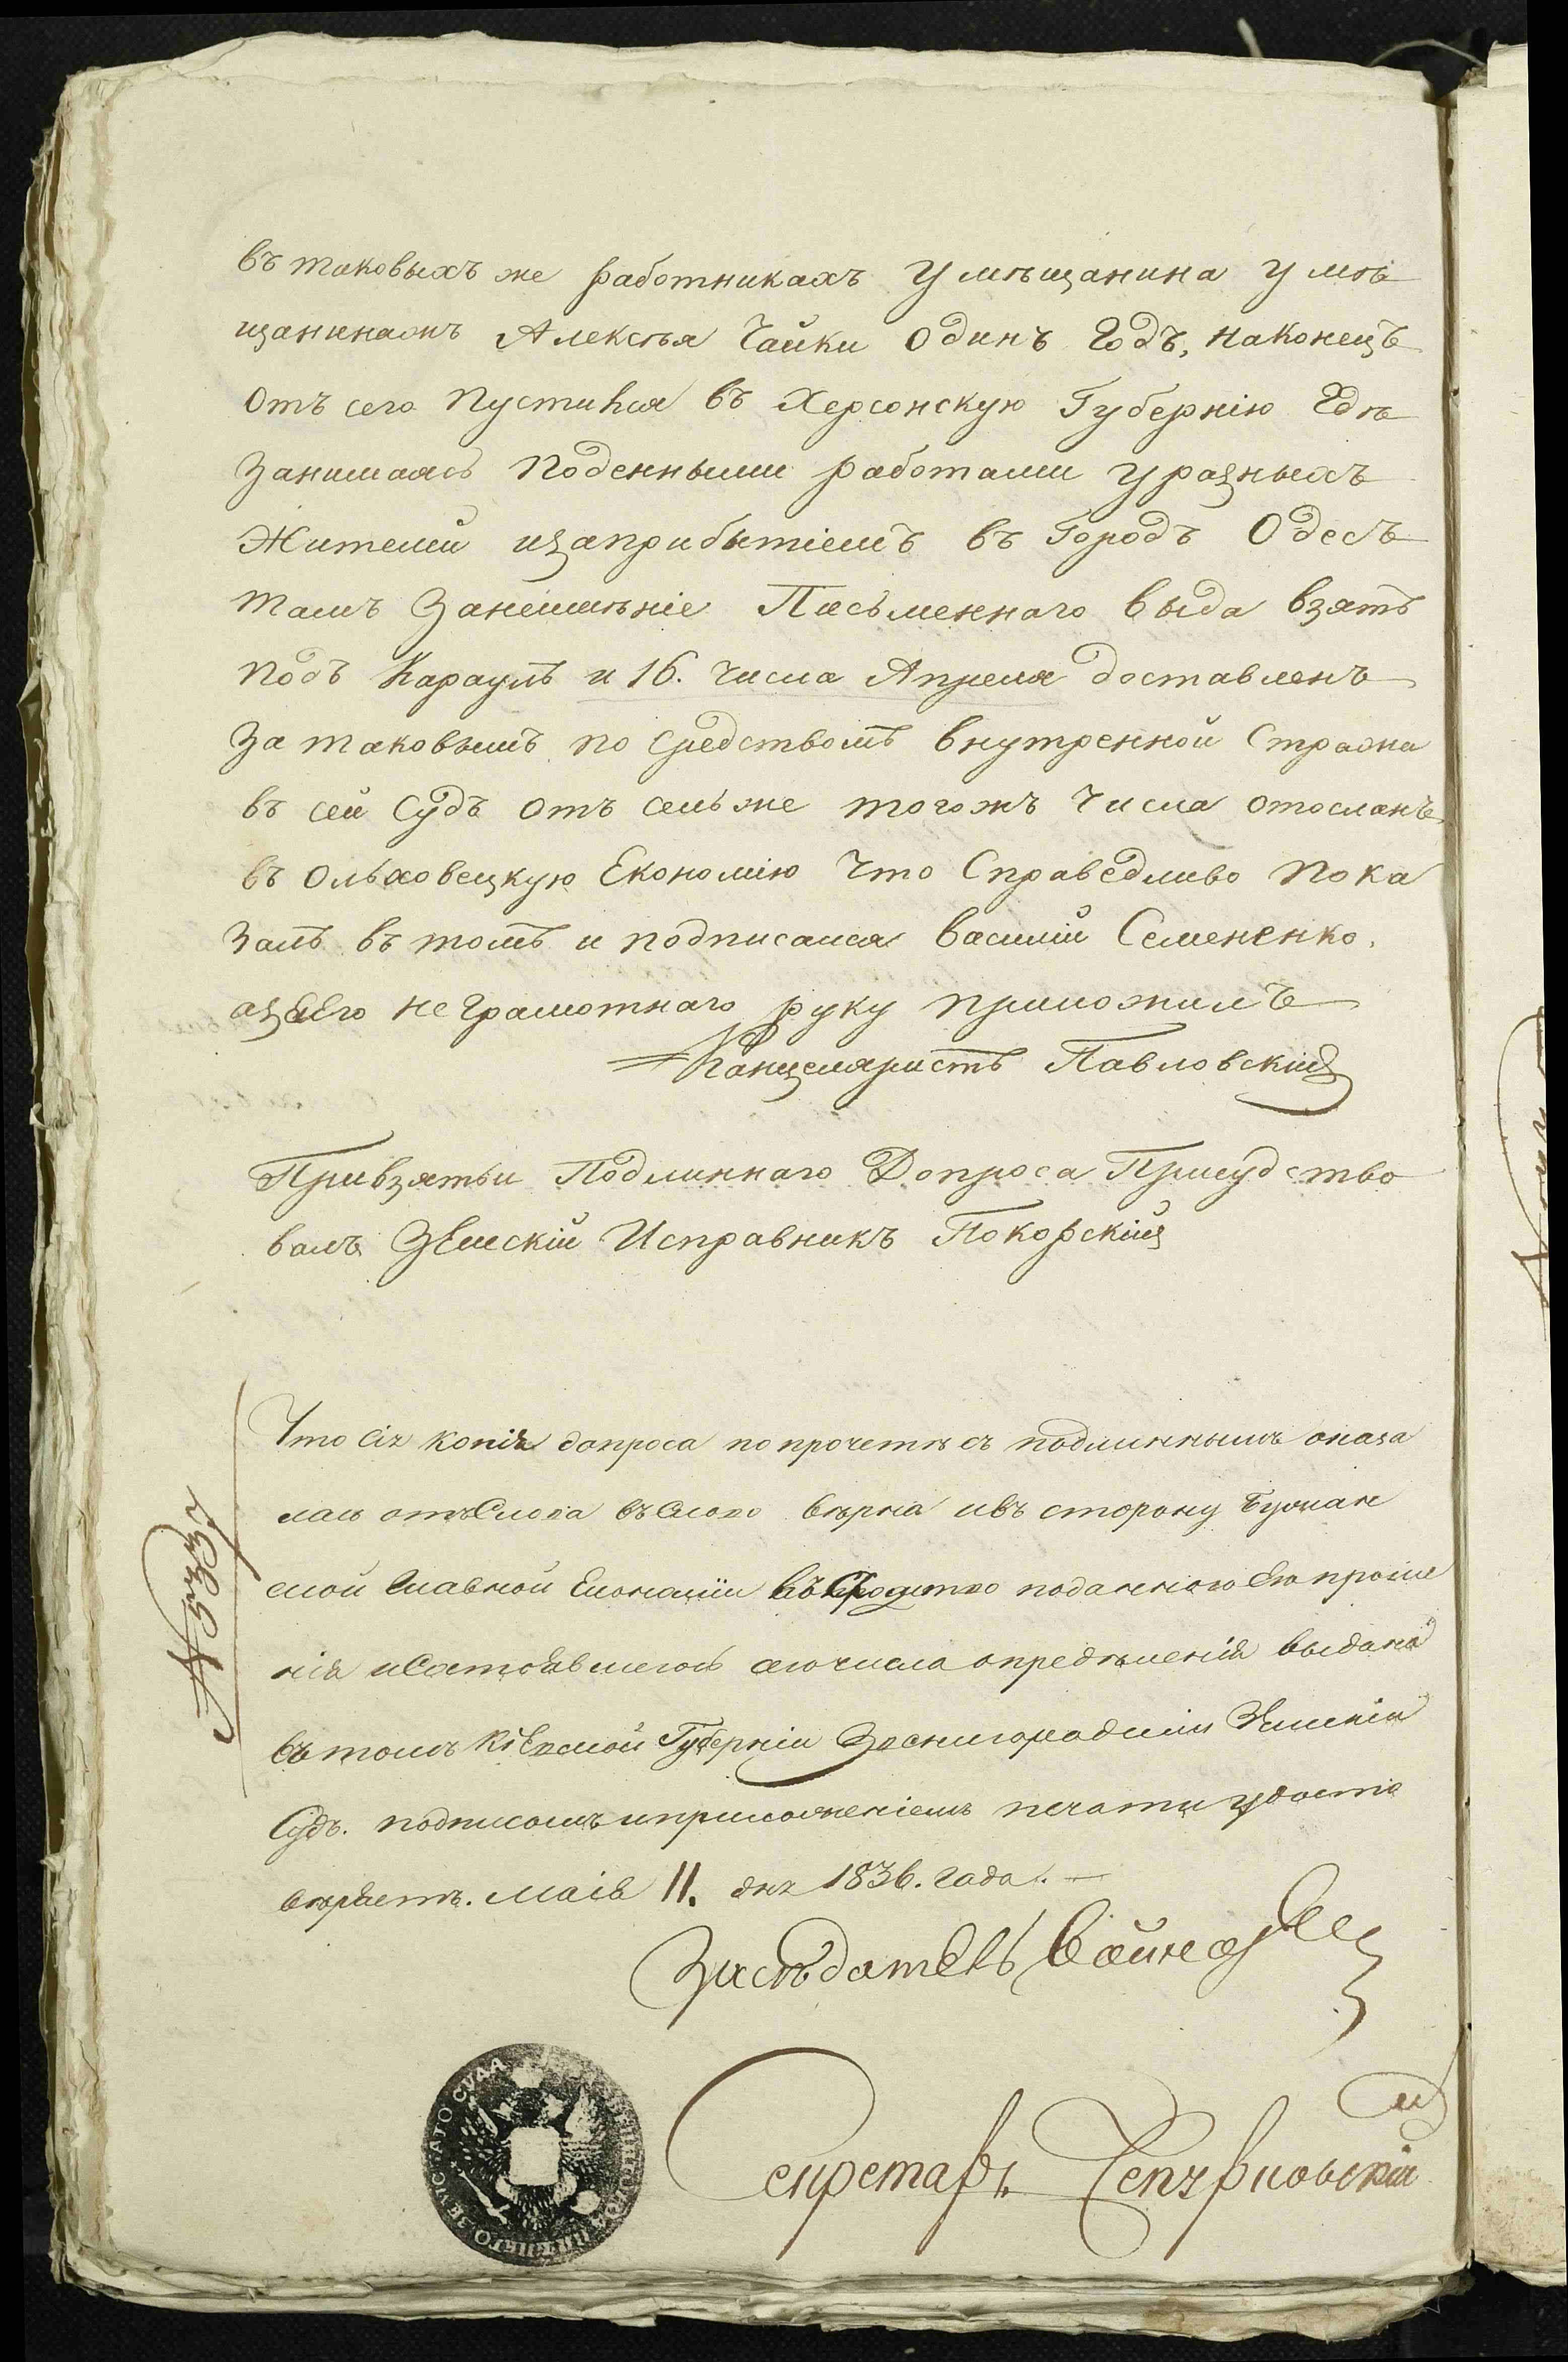 въ таковыхъ же работникахъ у мѣщанина у мѣ
щанинажъ Алексѣя Чайки Одинъ Годъ, наконецъ
отъ сего пустился въ Херсонскую Губернію Гдѣ
занимаясь поденными работами у разныхъ
Жителей изаприбытіемъ въ Городъ Одесъ
тамъ Занеимѣніе Письменнаго выда взятъ
подъ Караулъ и 16. числа Апреля доставленъ
За таковымъ по средствомъ внутренной Стражи
въ сей Судъ отъ сель же тогожъ Числа отосланъ
въ Ольховецкую Економію Что Справедливо Пока
залъ въ томъ и подписался василій Семененко,
азаЕго неграмотнаго руку приложилъ
Канцеляристъ Павловскій
Привзятьи Подлиннаго Допроса Присудство
валъ ЗЕмскій Исправникъ Покорскій
Что сія копія допроса по прочетѣ съ подлиннымъ оказа
лась отъ Слова въ Слово вѣрна ивъ сторону
Главной Економіи поданного Ею проше
нія иСостоявшегось сего числа опредѣленія выдана
въ томъ КіЕвской Губерніи Звенигородскій ЗЕмскій
Судъ. подписомъ иприложеніемъ печати удосто
вѣряетъ. Маія 11. дня 1836. Года. —
ЗасѣдатЕль
Секретарь
№ 5337
ЗЕМСКАГО СУДА